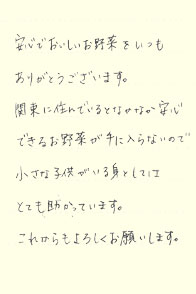 安心でおいしいお野菜をいつも
ありがとうございます。
関東に住んでいるとなかなか安心
できるお野菜が手に入らないので
小さな子供がいる身としては
とても助かっています。
これからもよろしくお願いします。